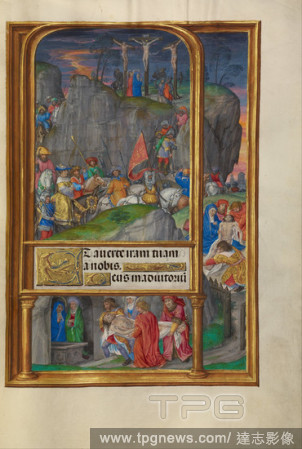 Et auerte iram tuam
a nobis.
eus in adiutoriū
TPG
www.tpgnews.com/ 達志影像